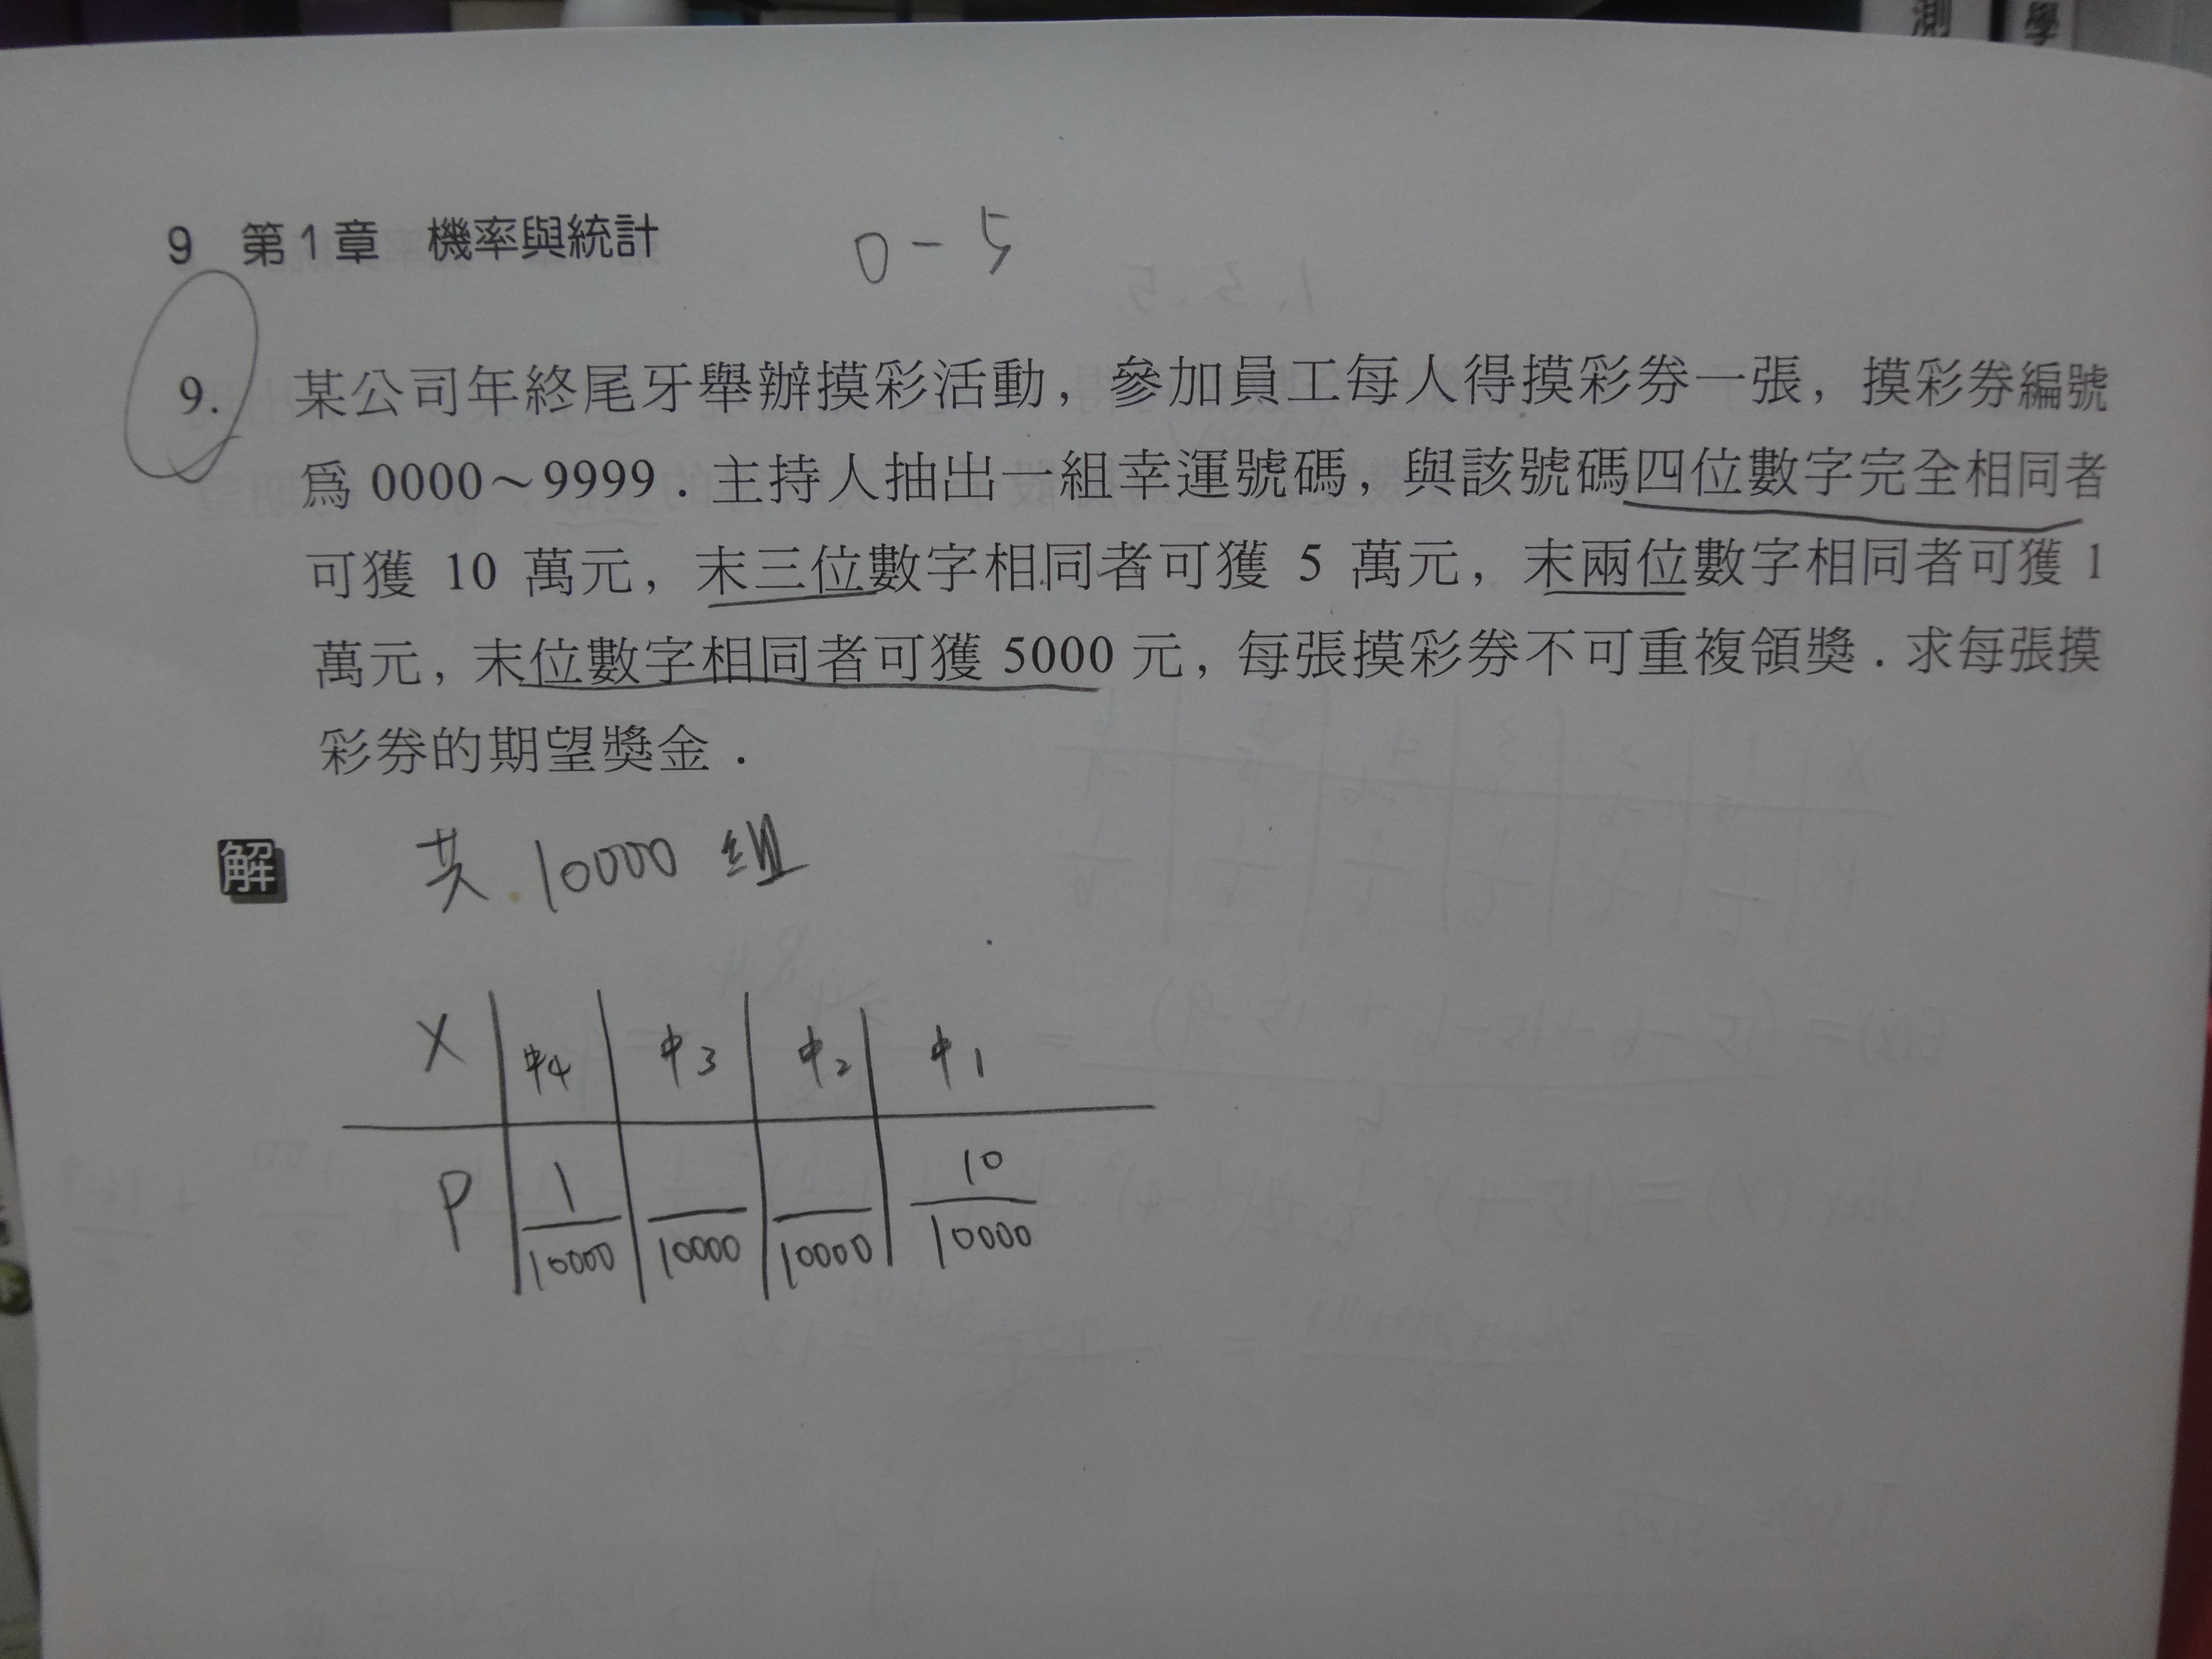 測 學
9 第1章 機率與統計
0-5
9. 某公司年終尾牙舉辦摸彩活動，參加員工每人得摸彩券一張，摸彩券編號
為 0000～9999．主持人抽出一組幸運號碼，與該號碼四位數字完全相同者
可獲 10 萬元，末三位數字相同者可獲 5 萬元，末兩位數字相同者可獲 1
萬元，末位數字相同者可獲 5000 元，每張摸彩券不可重複領獎．求每張摸
彩券的期望獎金．
解 共 10000 組
X 中4 中3 中2 中1
P 1/10000 /10000 /10000 10/10000